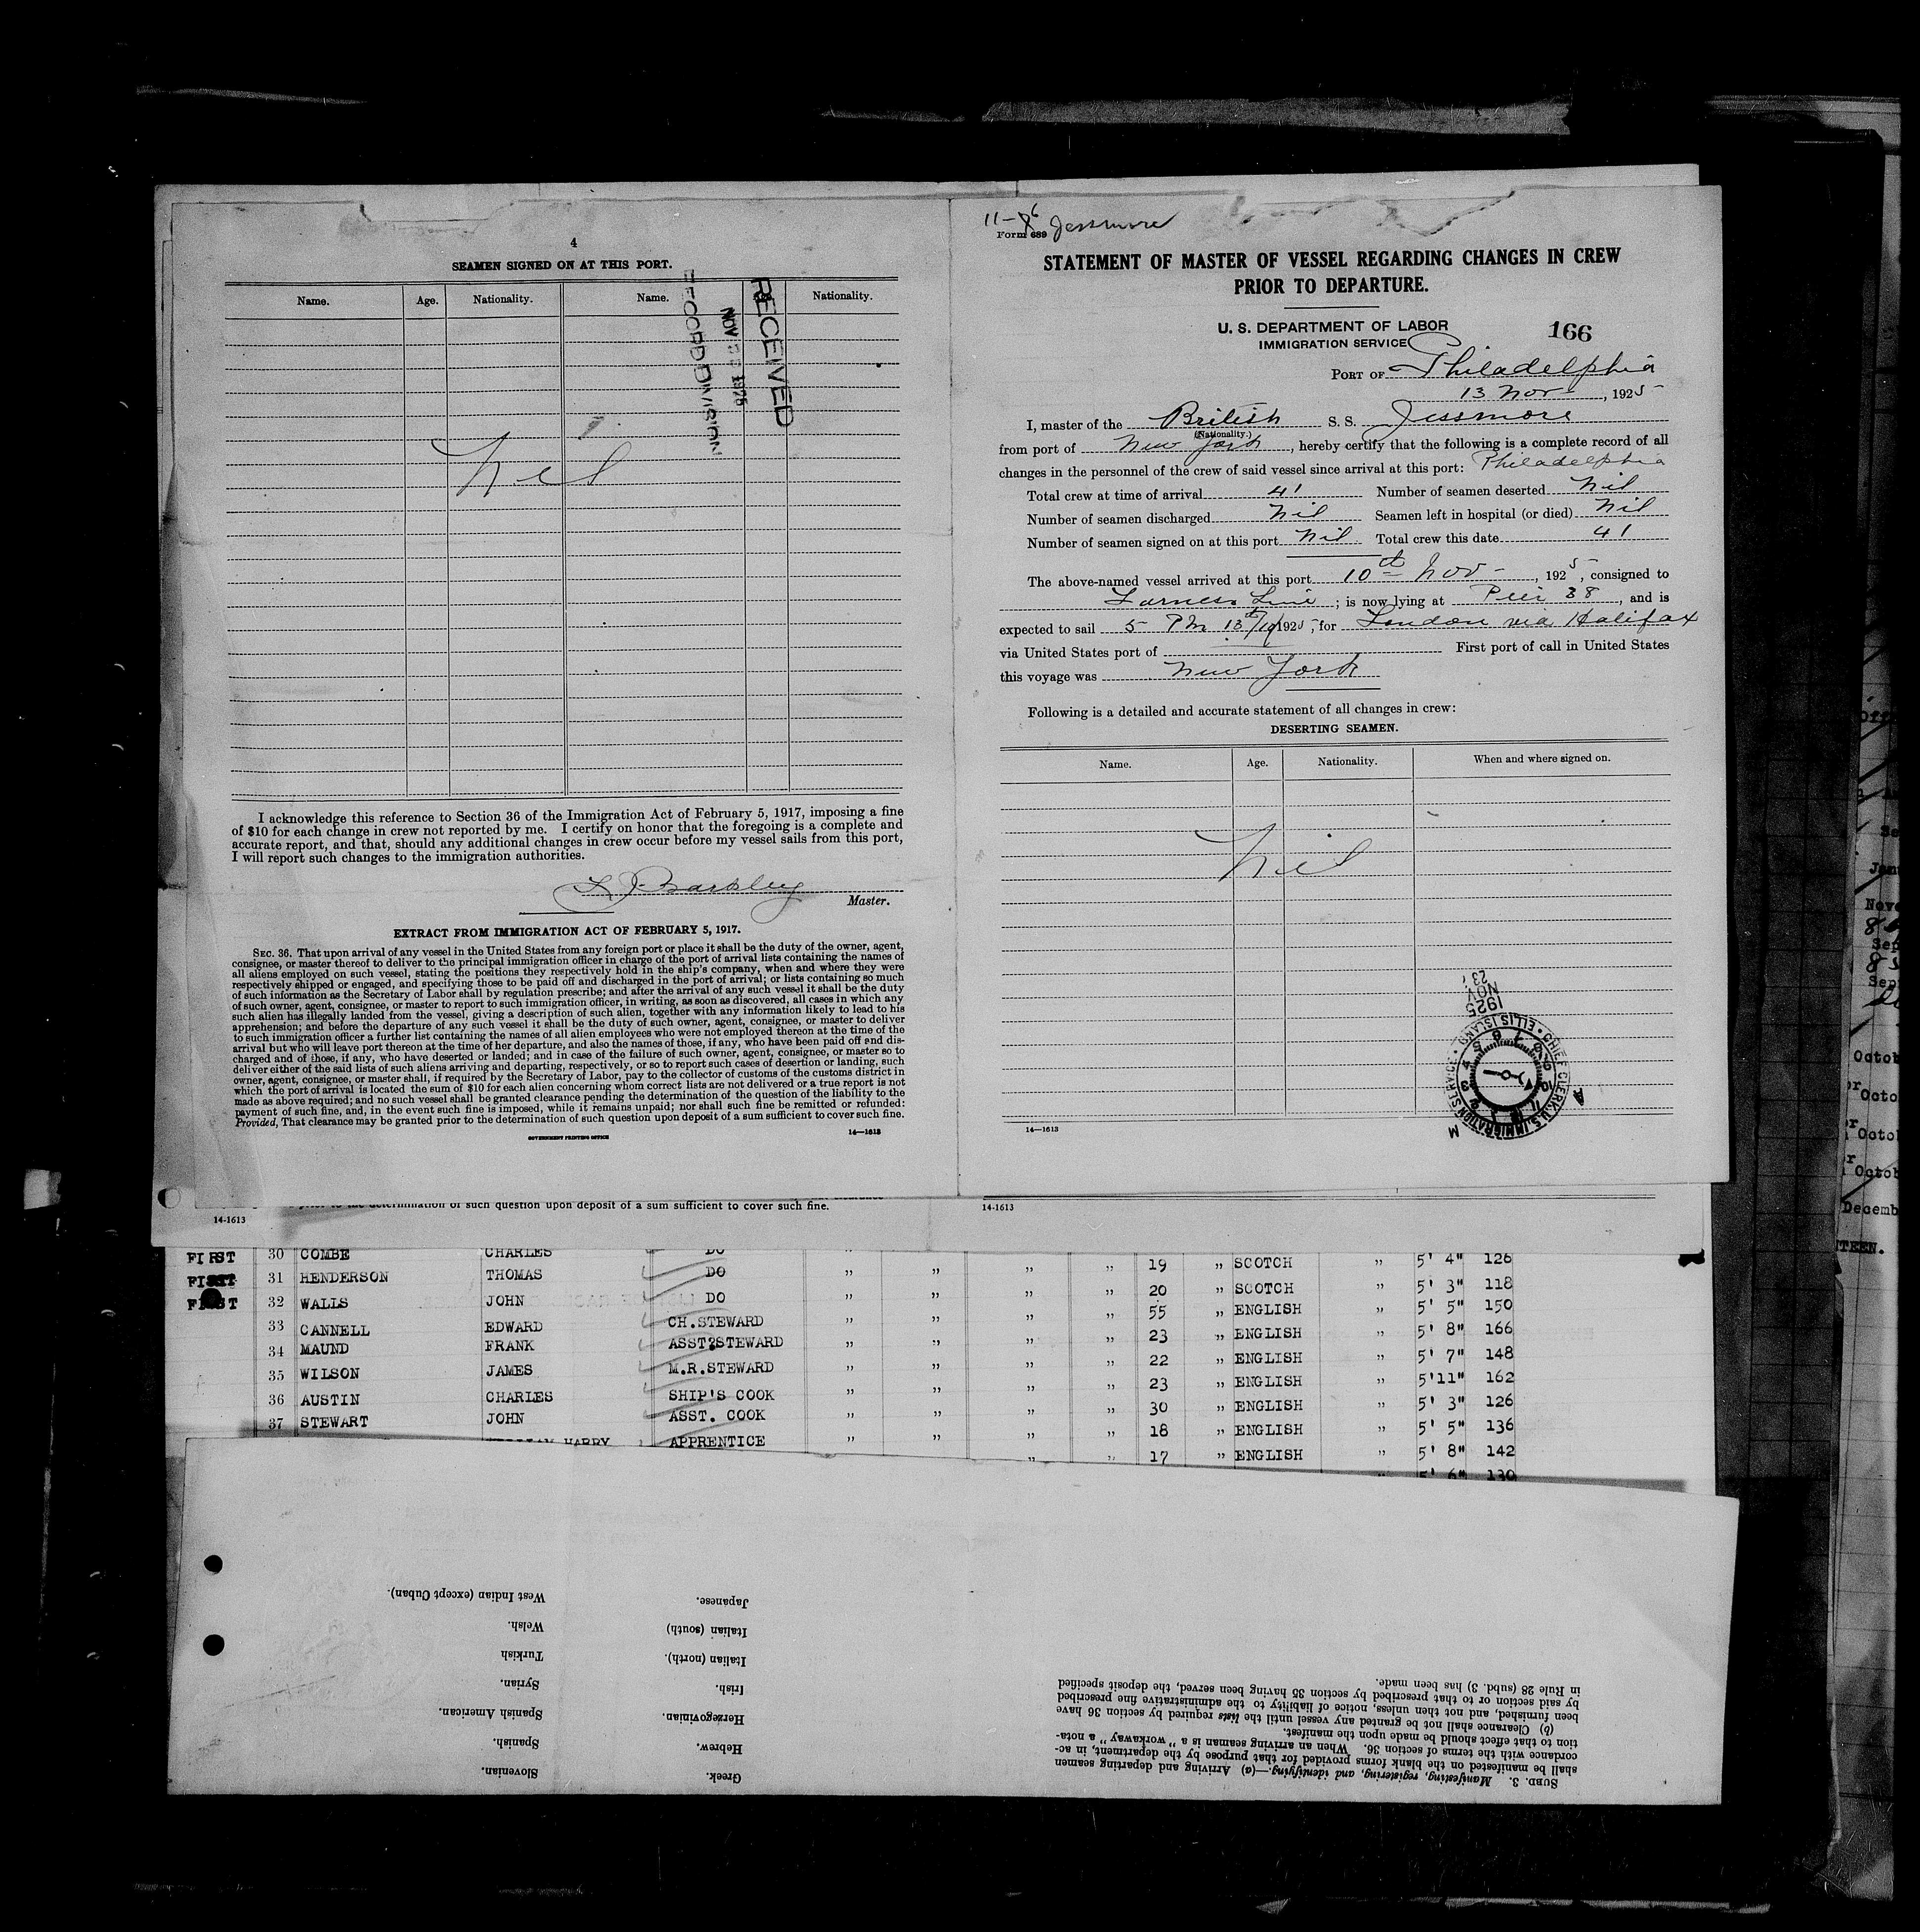 4
SEAMEN SIGNED ON AT THIS PORT.
Name. Age. Nationality. Name. Nationality.
RECEIVED
NOV 1925
RECORD DIVISION
Nil
I acknowledge this reference to Section 36 of the Immigration Act of February 5, 1917, imposing a fine
of $10 for each change in crew not reported by me. I certify on honor that the foregoing is a complete and
accurate report, and that, should any additional changes in crew occur before my vessel sails from this port,
I will report such changes to the immigration authorities.
Master.
EXTRACT FROM IMMIGRATION ACT OF FEBRUARY 5, 1917.
SEC. 36. That upon arrival of any vessel in the United States from any foreign port or place it shall be the duty of the owner, agent,
consignee, or master thereof to deliver to the principal immigration officer in charge of the port of arrival lists containing the names of
all aliens employed on such vessel, stating the positions they respectively hold in the ship's company, when and where they were
respectively shipped or engaged, and specifying those to be paid off and discharged in the port of arrival; or lists containing so much
of such information as the Secretary of Labor shall by regulation prescribe; and after the arrival of any such vessel it shall be the duty
of such owner, agent, consignee, or master to report to such immigration officer, in writing, as soon as discovered, all cases in which any
such alien has illegally landed from the vessel, giving a description of such alien, together with any information likely to lead to his
apprehension; and before the departure of any such vessel it shall be the duty of such owner, agent, consignee, or master to deliver
to such immigration officer a further list containing the names of all alien employees who were not employed thereon at the time of the
arrival but who will leave port thereon at the time of her departure, and also the names of those, if any, who have been paid off and dis-
charged and of those, if any, who have deserted or landed; and in case of the failure of such owner, agent, consignee, or master so to
deliver either of the said lists of such aliens arriving and departing, respectively, or so to report such cases of desertion or landing, such
owner, agent, consignee, or master shall, if required by the Secretary of Labor, pay to the collector of customs of the customs district in
which the port of arrival is located the sum of $10 for each alien concerning whom correct lists are not delivered or a true report is not
made as above required; and no such vessel shall be granted clearance pending the determination of the question of the liability to the
payment of such fine, and, in the event such fine is imposed, while it remains unpaid; nor shall such fine be remitted or refunded:
Provided, That clearance may be granted prior to the determination of such question upon deposit of a sum sufficient to cover such fine.
GOVERNMENT PRINTING OFFICE 14—1613
Jessmore
Form 689
STATEMENT OF MASTER OF VESSEL REGARDING CHANGES IN CREW
PRIOR TO DEPARTURE.
U. S. DEPARTMENT OF LABOR
IMMIGRATION SERVICE
166
PORT OF Philadelphia
13 Nov, 1925
I, master of the British S. S. Jessmore
(Nationality.)
from port of New York, hereby certify that the following is a complete record of all
changes in the personnel of the crew of said vessel since arrival at this port: Philadelphia
Total crew at time of arrival 41 Number of seamen deserted Nil
Number of seamen discharged Nil Seamen left in hospital (or died) Nil
Number of seamen signed on at this port Nil Total crew this date 41
The above-named vessel arrived at this port 10th Nov -, 1925, consigned to
Furness Line; is now lying at Pier 38, and is
expected to sail 5 PM 13th/11 1925, for London via Halifax
via United States port of First port of call in United States
this voyage was New York
Following is a detailed and accurate statement of all changes in crew:
DESERTING SEAMEN.
Name. Age. Nationality. When and where signed on.
Nil
1925
NOV 23
CHIEF CLERK, U.S. IMMIGRATION SERVICE · ELLIS ISLAND
14—1613
determination of such question upon deposit of a sum sufficient to cover such fine.
14-1613 14-1613
FIRST 30 COMBE CHARLES DO " " " " 19 " SCOTCH " 5' 4" 126
FIRST 31 HENDERSON THOMAS DO " " " " 20 " SCOTCH " 5' 3" 118
FIRST 32 WALLS JOHN DO " " " " 55 " ENGLISH " 5' 5" 150
33 CANNELL EDWARD CH.STEWARD " " " " 23 " ENGLISH " 5' 8" 166
34 MAUND FRANK ASST.STEWARD " " " " 22 " ENGLISH " 5' 7" 148
35 WILSON JAMES M.R.STEWARD " " " " 23 " ENGLISH " 5'11" 162
36 AUSTIN CHARLES SHIP'S COOK " " " " 30 " ENGLISH " 5' 3" 126
37 STEWART JOHN ASST. COOK " " " " 18 " ENGLISH " 5' 5" 136
HARRY APPRENTICE " " " " 17 " ENGLISH " 5' 8" 142
" 5' 6" 130
Greek.
Hebrew.
Herzegovinian.
Irish.
Italian (north).
Italian (south)
Japanese.
Slovenian.
Spanish.
Spanish American.
Syrian.
Turkish
Welsh.
West Indian (except Cuban).
SUBD. 3. Manifesting, registering, and identifying.—(a) Arriving and departing seamen
shall be manifested on the blank forms provided for that purpose by the department, in ac-
cordance with the terms of section 36. When an arriving seaman is a "workaway" a nota-
tion to that effect should be made upon the manifest.
(b) Clearance shall not be granted any vessel until the lists required by section 36 have
been furnished, and not then unless, notice of liability to the administrative fine prescribed
by said section or to that prescribed by section 35 having been served, the deposit specified
in Rule 28 (subd. 3) has been made.